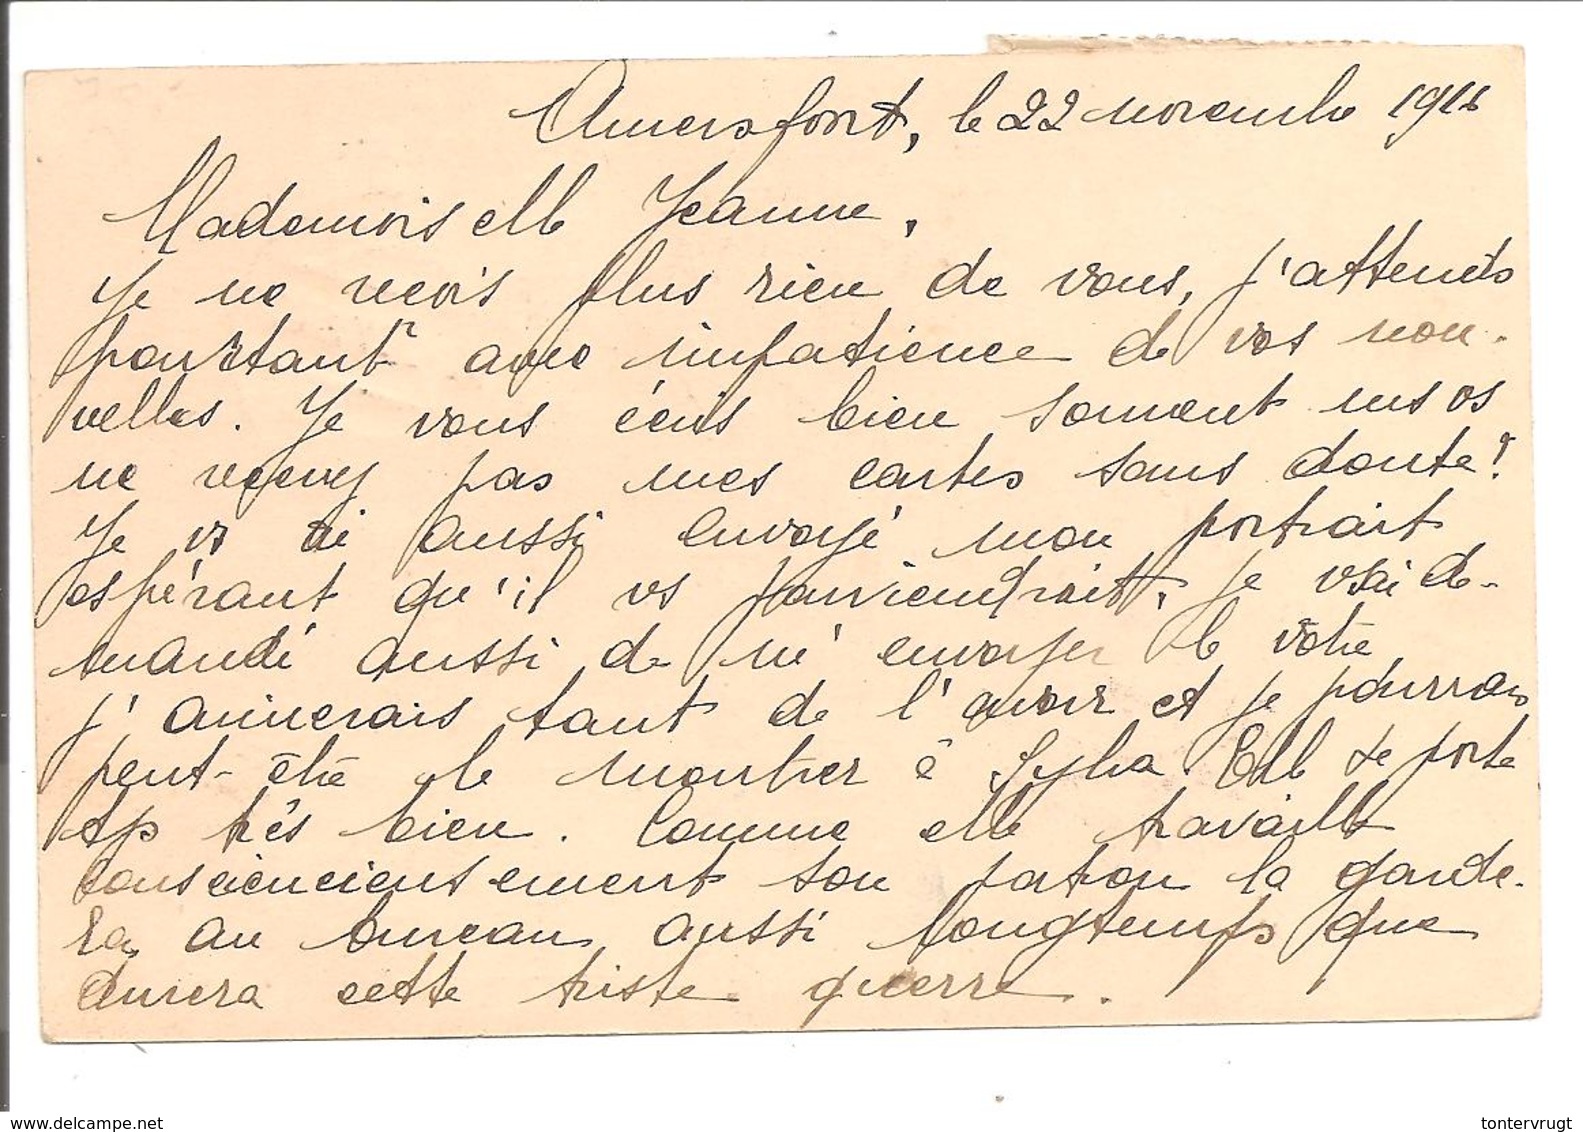 Amersfort, le 22 novembre 1916
Mademoiselle Jeanne,
Je ne reçois plus rien de vous, j'attends
pourtant avec impatience de vos nou-
velles. Je vous écris bien souvent ms vs
ne recevez pas mes cartes sans doute!
Je vs ai aussi envoyé mon portrait
espérant qu'il vs parviendrait, je vs ai de-
mandé aussi de m'envoyer le vôtre
j'aimerais tant de l'avoir et je pourrais
peut-être le montrer à Sylva. Elle se porte
tjs très bien. Comme elle travaille
consciencieusement son patron la garde-
ra au bureau aussi longtemps que
durera cette triste guerre.
www.delcampe.net
tontervrugt